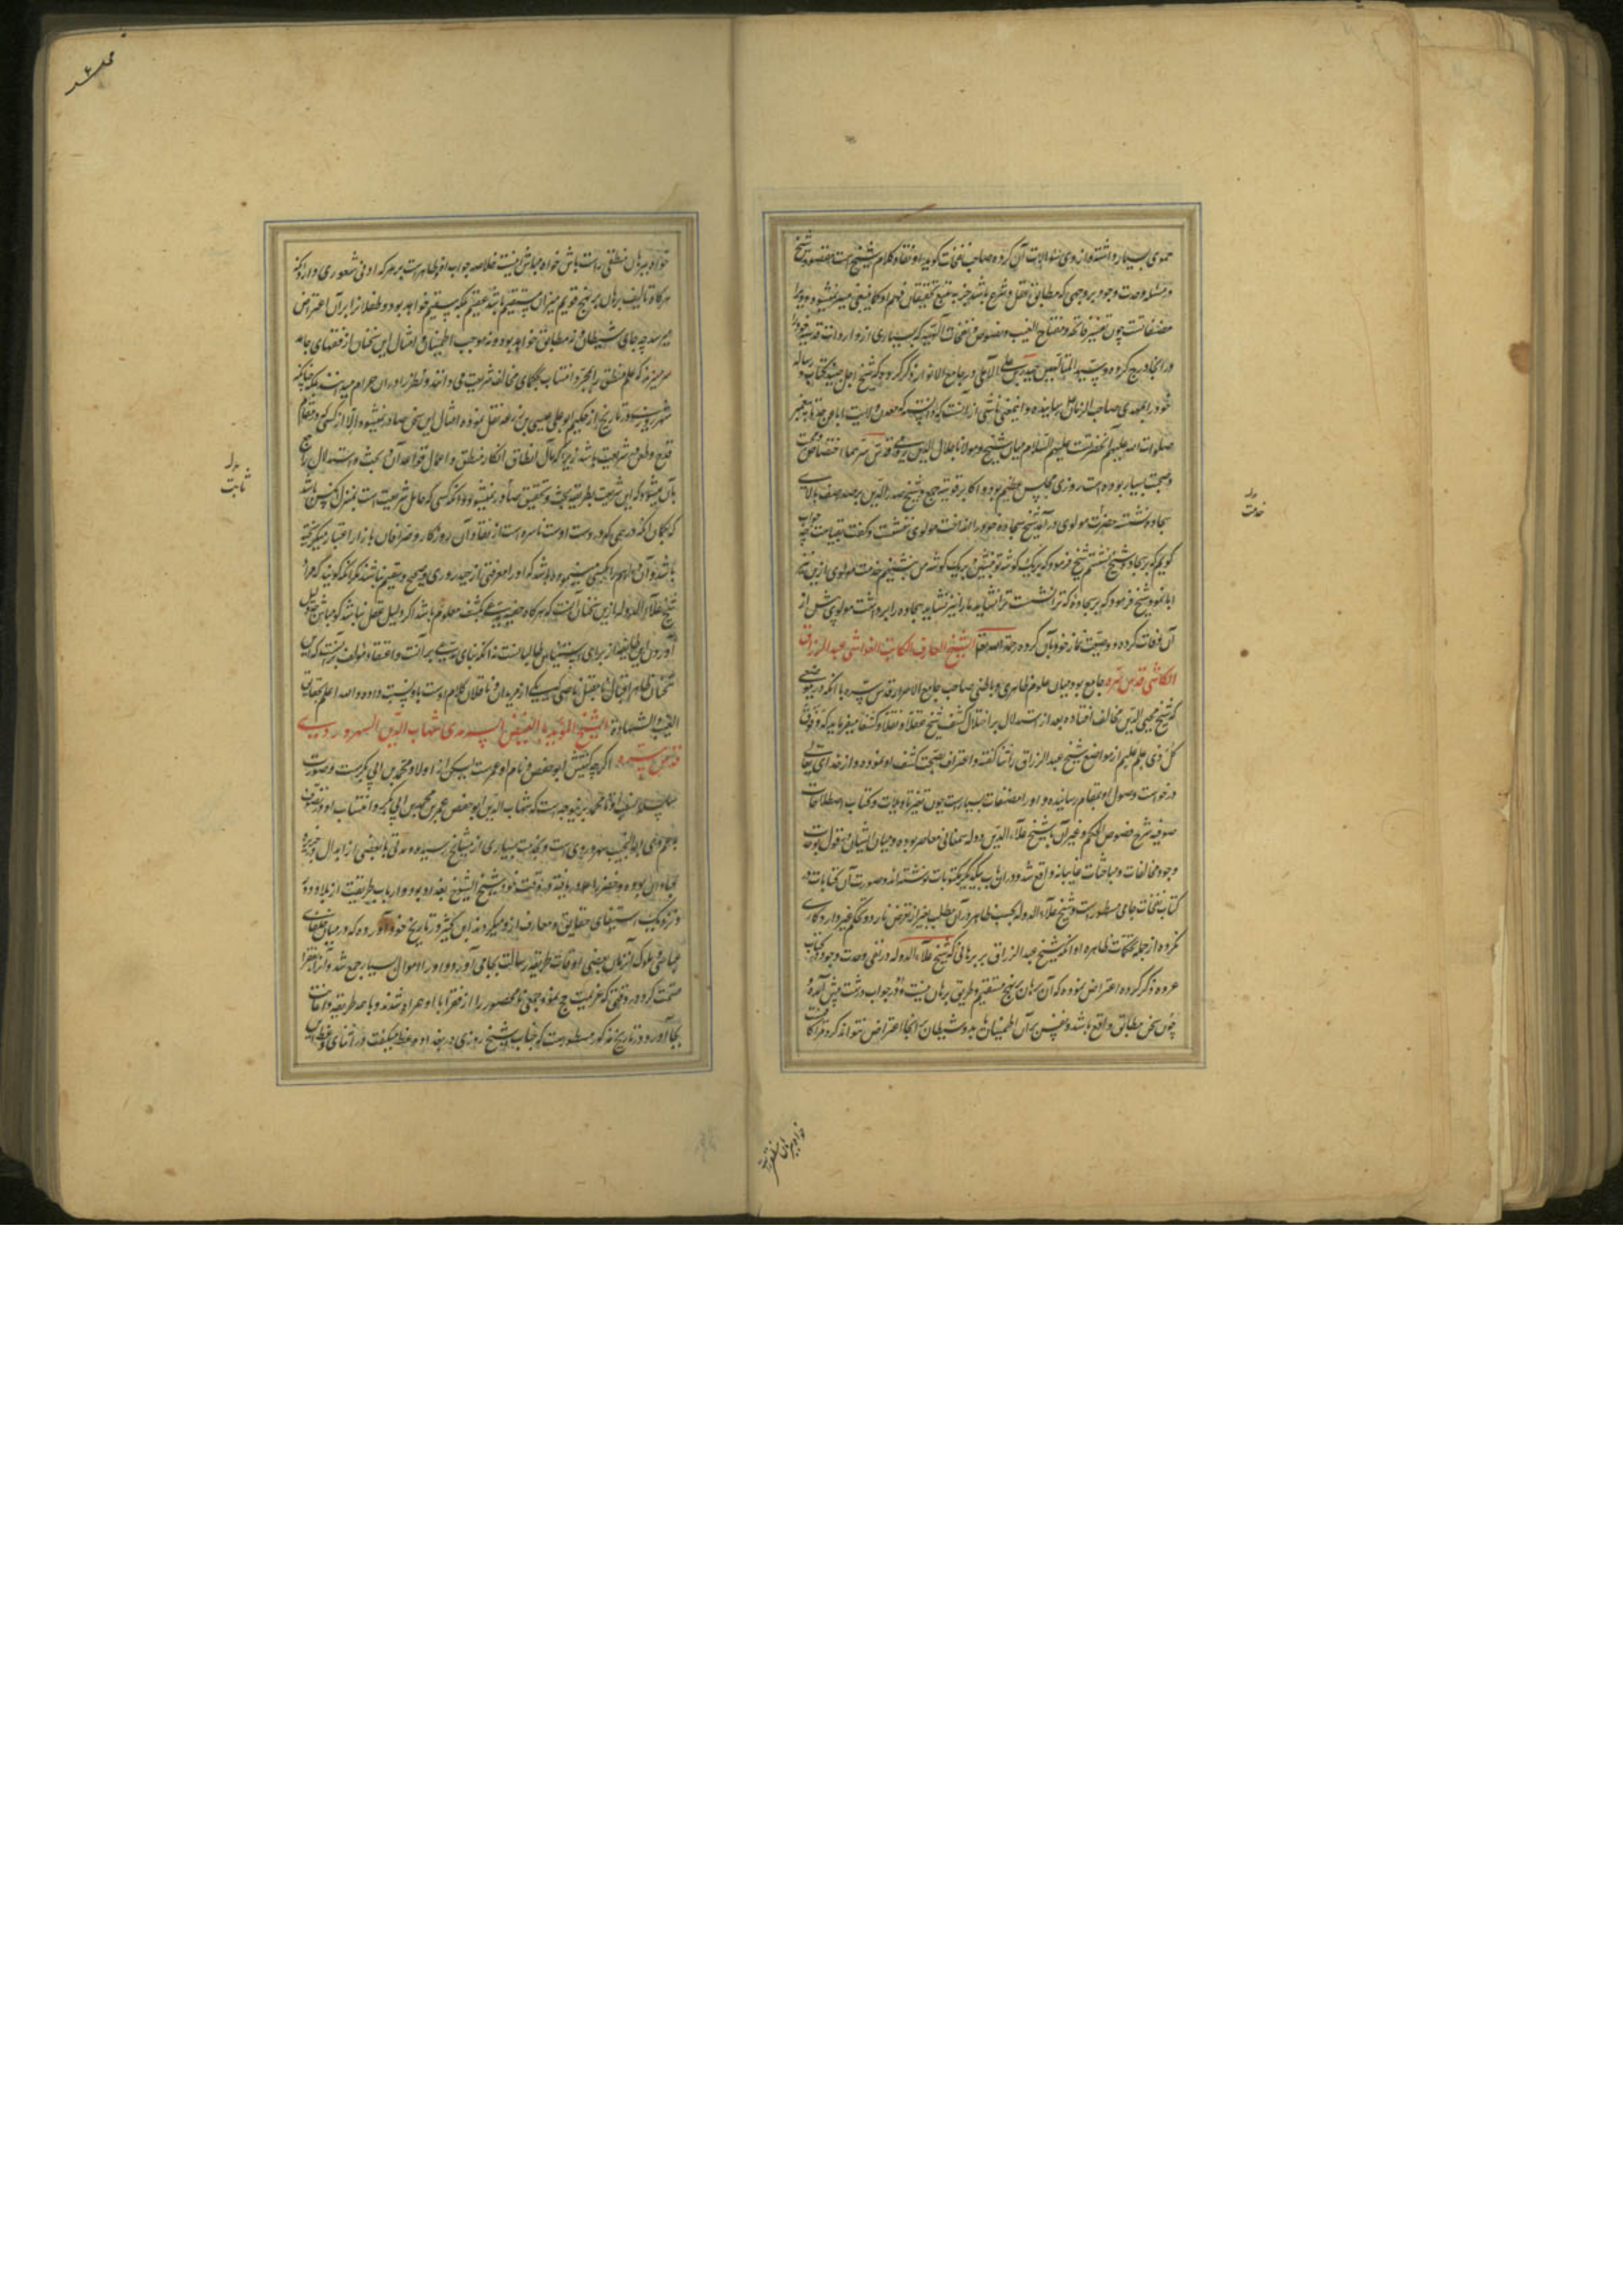 حموی بسیار داشته و از وی سئوالات آن کرده صاحب نفحات گوید او نقاد کلام شیخ است مقصود شیخ
در مسئله وحدت وجود بر وجهی که مطابق عقل و شرع باشد جز به تتبع تحقیقات و فهم او کما ینبغی میسر نمیشود و ویرا
مصنفاتست چون تفسیر فاتحه و مفتاح الغیب و نصوص و نفحات الهیه که بسیاری از واردات قدسیه خود را
در انجا درج کرده و سید المتألهین حیدر بن علی الآملی در جامع الانوار ذکر کرده که شیخ اجل چند کتاب و رساله
خود را بمهدی صاحب الزمان رسانیده و اینمعنی ناشی از آنست که دانسته که معدن ولایت
صلوات الله علیهم آنحضرتست علیهم السلام میان شیخ و مولانا جلال الدین رومی قدس سرهما اختصاص و محبت
و صحبت بسیار بوده است روزی مجلس عظیم بود و اکابر قونیه جمع و شیخ صدر الدین بر صدر صفه بالای
سجاده نشسته حضرت مولوی در آمد شیخ سجاده خود را انداخت مولوی ننشست و گفت بقیامت چه جواب
گویم که بر سجاده شیخ نشستم شیخ فرمود که بر یک گوشه تو بنشین و بر یک گوشه من بنشینم خدمت مولوی ازین نیز
ابا نمود شیخ فرمود که بر سجاده که ترا نشست نشاید ما را نیز نشاید سجاده را برداشت مولوی پیش از
آن وفات کرده و وصیت نماز خود بآن کرده رحمة الله علیهما الشیخ العارف الکاشف الغواشی عبد الرزاق
الکاشی قدس سره جامع بود میان علوم ظاهری و باطنی صاحب جامع الاسرار قدس سره با آنکه در بعضی
که شیخ محیی الدین مخالف افتاده بعد از استدلال بر اختلال کشف شیخ عقلا و نقلا و کشفا میفرماید که و فوق
کل ذی علم علیم از مواضع شیخ عبد الرزاق را ثنا گفته و اعتراف بصحت کشف او نموده و از خدای تعالی
درخواست وصول او بمقام رسانیده و او را مصنفات بسیارست چون تفسیر تاویلات و کتاب اصطلاحات
صوفیه شرح فصوص الحکم و غیر آن با شیخ علاء الدین دوله سمنانی معاصر بوده و میان ایشان در قول بوحدت
وجود مخالفات و مباحثات غایبانه واقع شد و در آن باب بیکدیگر مکتوبات نوشته اند و صورت آن کتابات در
کتاب نفحات جامی مسطورست و شیخ علاء الدوله بحسب ظاهر در آن مطلب بغیر از تعرض نارد و تحکم غیر وارد کاری
نکرده از جمله تحکمات ظاهره او آنکه شیخ عبد الرزاق بر برهانی که شیخ علاء الدوله در نفی وحدت وجود در کتاب
عروه ذکر کرده اعتراض نموده که آن برهان بر نهج مستقیم و طریق برهان نیست او در جواب درشت پیش آمده
چون سخن مطابق واقع باشد و نفس بر آن اطمینان یابد و شیطان بر آنجا اعتراض نتواند کرد
خدمت
خواه ببرهان منطقی راست باش خواه مباش اینست خلاصه جواب او و ظاهرست بر هر که ادنی شعوری دارد که
هرگاه تالیف برهان بر نهج قویم میزان مستقیم نباشد عقیم بلکه سقیم خواهد بود و طفلانرا بر آن اعتراض
میرسد چه جای شیطان و نه مطابق خواهد بود و نه موجب اطمینان و امثال این سخنان از فقهای جامد
سرمیزند که علم منطق را بمجرد انتساب بحکمای مخالف شریعت می دانند و نظر را در آن حرام میدانند بلکه چنانکه
شهرزوری در تاریخ از حکیم ابو علی عیسی بن زرعه نقل نموده امثال این سخن صادر نمیشود الا از کسی که در مقام
قدح و طعن شریعت باشد زیرا که مآل انطاق انکار منطق و اهمال قواعد آن و بحث و استدلال راجع
بآن میشود که این شریعت بطریقه بحث و تحقیق صادر نمیشود و آنکه کسی که حامل شریعت است بمنزله کسی باشد
که بگمان آنکه درهمی که در دست اوست ناسره است از نقاد آن روزگار و صرافان بازار اعتبار میگریخته
باشد و آن درهم را بکسی مینموده باشد که او را معرفتی از جید و ردی و صحیح و سقیم نباشد مگر آنکه گویند که مراد
شیخ علاء الدوله ازین سخنان آنست که هرگاه حقیقت مدعی بکشف معلوم ما باشد اگر دلیل عقل نباشد گو مباش چون دلیل
آوردن این طایفه از برای استیناس طالبانست نه آنکه بنای مدعی بر آنست و اعتقاد مولف آنست که این
سخنان ظاهرا اقبال ناقابل ناصبی که یکی از مریدان و ناقلان کلام اوست باو نسبت داده و الله اعلم بحقایق
الغیب و الشهادة الشیخ المؤید بالفیض السرمدی شهاب الدین السهروردی
قدس سره اگرچه کنیتش ابو حفص و نام او عمرست لیکن از اولاد محمد بن ابی بکرست و صورت
سلسله نسب او تا محمد برینوجه است که شهاب الدین ابو حفص عمر بن محمد بن ابی بکر و انتساب او در تصوف
بعم وی ابو النجیب سهروردی است و بخدمت بسیاری از مشایخ رسیده و مدتی با بعضی از ابدال در جزیره
عبادان بوده و خضر را علیه السلام دریافته و در وقت خود شیخ الشیوخ بغداد بود و ارباب طریقت از بلاد دور
و نزدیک استیفای حقایق و معارف ازو میکردند ابن کثیر در تاریخ خود آورده که در میان خلفای
عباسی و ملوک آنزمان بعضی اوقات طریقه رسالت بجا می آورد و او را اموال بسیار جمع شد و آنرا بفقرا
قسمت کرد و در وقتی که عزیمت حج نمود جمعی نامحصور از فقرا با او همراه شدند و با همه طریقه
بجا آورد و در تاریخ مذکور مسطورست که جناب شیخ روزی در بغداد وعظ میگفت در اثنای وعظ این
ثابت